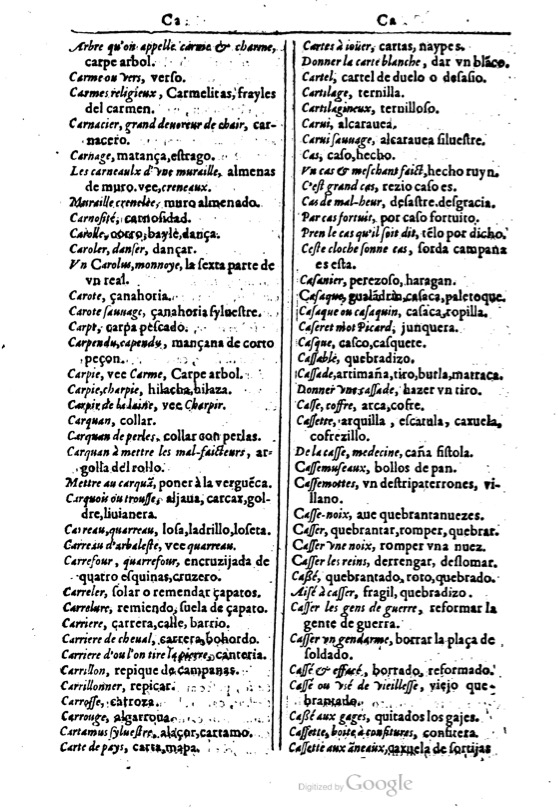 Ca
Ca
Arbre qu'on appelle carme & charme,
carpe arbol.
Carme ou vers, verso.
Carmes religieux, Carmelitas, frayles
del carmen.
Carnacier, grand deuoreur de chair, car-
nacero.
Carnage, matança, estrago.
Les carneaulx d'vne muraille, almenas
de muro. vee, creneaux.
Muraille crenelée, muro almenado.
Carnosité, carnosidad.
Carolle, corro, bayle, dança.
Caroler, danser, dançar.
Vn Carolus, monnoye, la sexta parte de
vn real.
Carote, çanahoria.
Carote sauuage, çanahoria syluestre.
Carpe, carpa pescado.
Carpendu, capendu, mançana de corto
peçon.
Carpie, vee Carme, Carpe arbol.
Carpie, charpie, hilacha, hilaza.
Carpir de la laine, vee Charpir.
Carquan, collar.
Carquan de perles, collar con perlas.
Carquan à mettre les mal-faicteurs, ar-
golla del rollo.
Mettre au carquã, poner à la vergueça.
Carquois ou trousse, aljaua, carcax, gol-
dre, liuianera.
Carreau, quarreau, losa, ladrillo, loseta.
Carreau d'arbaleste, vee quarreau.
Carrefour, quarrefour, encruzijada de
quatro esquinas, cruzero.
Carreler, solar o remendar çapatos.
Carrelure, remiendo, suela de çapato.
Carriere, carrera, calle, barrio.
Carriere de cheual, carrera, bohordo.
Carriere d'ou l'on tire la pierre, canteria.
Carrillon, repique de campanas.
Carrillonner, repicar.
Carrosse, carroza.
Carrouge, algarroua.
Cartamus syluestre, alaçor, cartamo.
Carte de pays, carta, mapa.
Cartes à ioüer, cartas, naypes.
Donner la carte blanche, dar vn blãco.
Cartel, cartel de duelo o desasio.
Cartilage, ternilla.
Cartilagineux, ternilloso.
Carui, alcarauea.
Carui sauuage, alcarauea siluestre.
Cas, caso, hecho.
Vn cas & meschant faict, hecho ruyn.
C'est grand cas, rezio caso es.
Cas de mal-heur, desastre. desgracia.
Par cas fortuit, por caso fortuito.
Pren le cas qu'il soit dit, tẽlo por dicho.
Ceste cloche sonne cas, sorda campana
es esta.
Casanier, perezoso, haragan.
Casaque, gualdrin, casaca, paletoque.
Casaque ou casaquin, casaca, ropilla.
Caseret mot Picard, junquera.
Casque, casco, casquete.
Cassable, quebradizo.
Cassade, artimaña, tiro, burla, matraca.
Donner vne cassade, hazer vn tiro.
Casse, coffre, arca, cofre.
Cassette, arquilla, escatula, caxuela,
cofrezillo.
De la casse, medecine, caña fistola.
Cassemuseaux, bollos de pan.
Cassemottes, vn destripaterrones, vi-
llano.
Casse-noix, aue quebrantanuezes.
Casser, quebrantar, romper, quebrar.
Casser vne noix, romper vna nuez.
Casser les reins, derrengar, deslomar.
Cassé, quebrantado, roto, quebrado.
Aisé à casser, fragil, quebradizo.
Casser les gens de guerre, reformar la
gente de guerra.
Casser vn gendarme, borrar la plaça de
soldado.
Cassé & effacé, borrado, reformado.
Cassé ou vsé de vieillesse, viejo que-
brantado.
Cassé aux gages, quitados los gajes.
Cassette, boite à confitures, confitera.
Cassette aux ãneaux, caxuela de sortijas
Digitized by Google